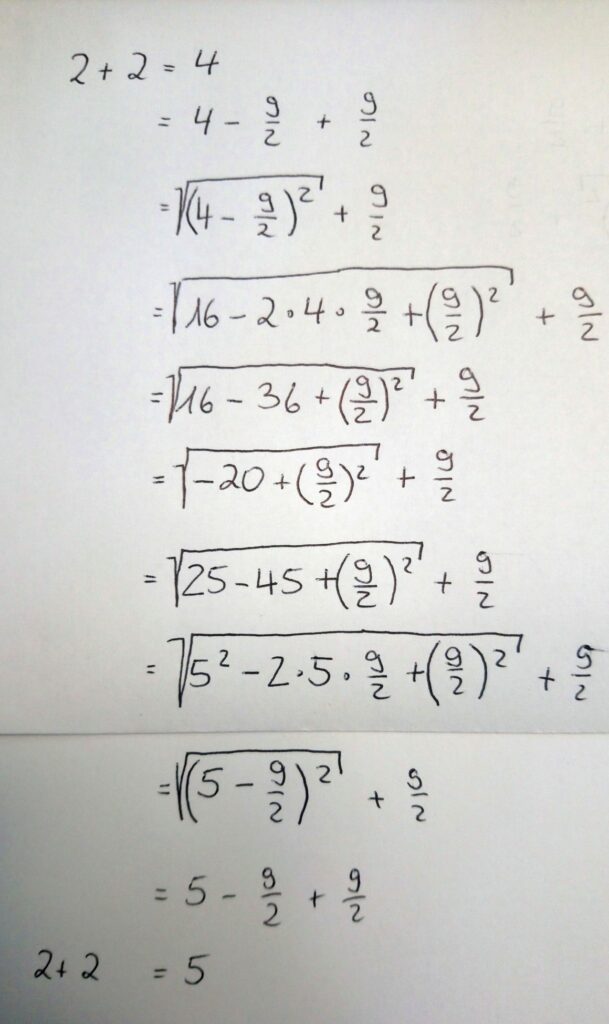 2 + 2 = 4
= 4 - 9/2 + 9/2
= √((4 - 9/2)²) + 9/2
= √(16 - 2·4·9/2 + (9/2)²) + 9/2
= √(16 - 36 + (9/2)²) + 9/2
= √(-20 + (9/2)²) + 9/2
= √(25 - 45 + (9/2)²) + 9/2
= √(5² - 2·5·9/2 + (9/2)²) + 9/2
= √((5 - 9/2)²) + 9/2
= 5 - 9/2 + 9/2
2 + 2 = 5